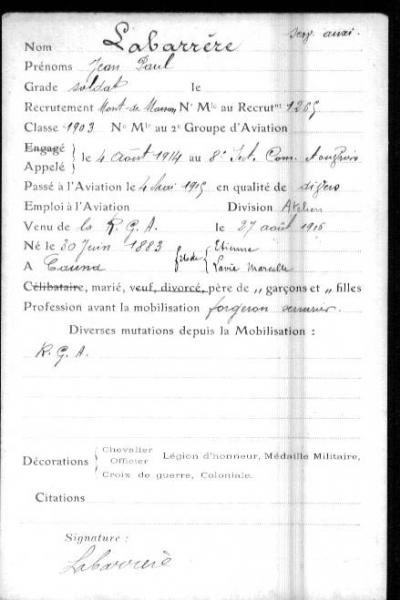 Serv. auxi.
Nom Labarrère
Prénoms Jean Paul
Grade soldat le
Recrutement Mont-de-Marsan No Mle au Recrutt 1265
Classe 1903 No Mle au 2e Groupe d'Aviation
Engagé
Appelé } le 4 Août 1914 au 8e
Passé à l'Aviation le 4 1915 en qualité de
Emploi à l'Aviation Division Ateliers
Venu de la R.G.A. le 27 août 1916
Né le 30 Juin 1883 fils de { Etienne
A Marcelle
Célibataire, marié, veuf, divorcé, père de „ garçons et „ filles
Profession avant la mobilisation forgeron serrurier.
Diverses mutations depuis la Mobilisation :
R.G.A.
Décorations { Chevalier
Officier Légion d'honneur, Médaille Militaire,
Croix de guerre, Coloniale.
Citations
Signature :
Labarrère